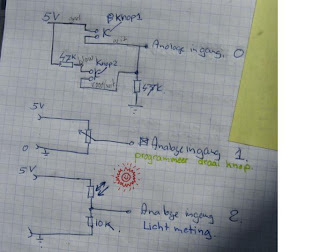 5V
Knop1
Analoge ingang: 0
Knop2
47K
5V
Analoge ingang 1.
programmeer draai knop.
0
5V
Analoge ingang 2.
10K
Licht meting.